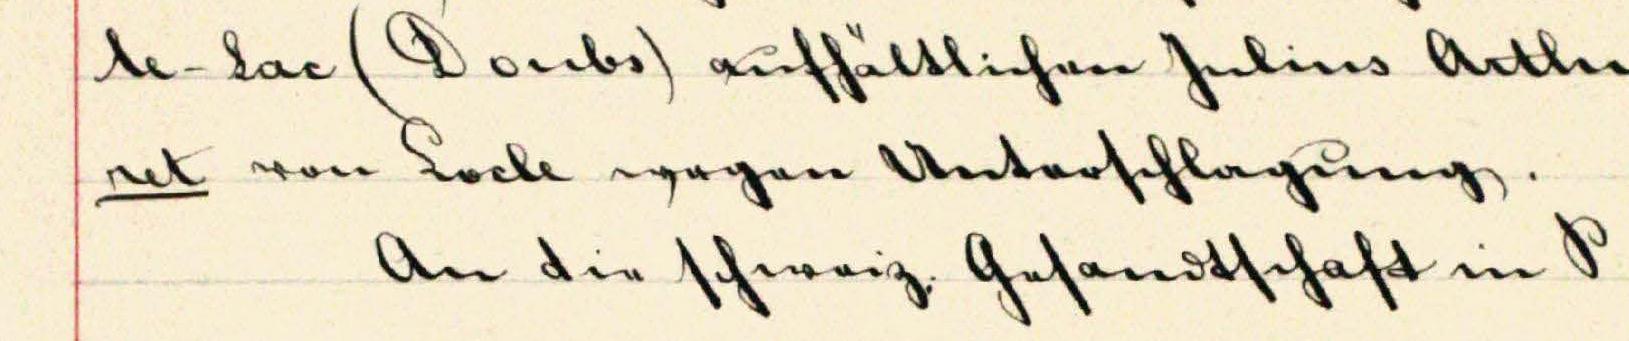 le-Lac (Doubs) aufhältlichen Julius Arthu
ret von Locle wegen Unterschlagung.
An die schweiz. Gesandtschaft in P